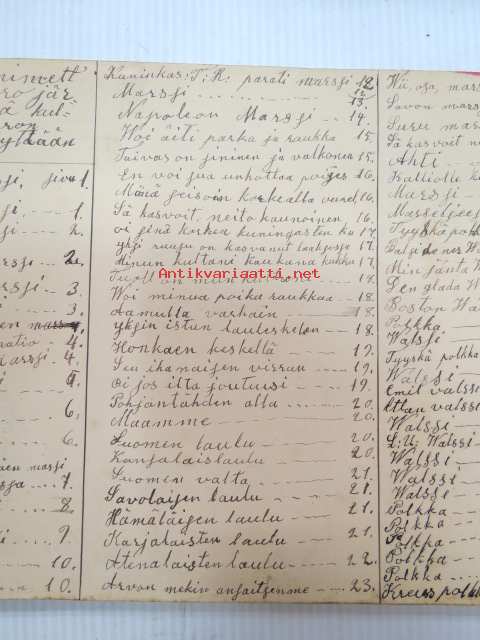 nimett
ro jär
ä kul-
ron
ytään
ssji, sivu 1.
ssji, 1.
2.
arssji 2.
3.
3.
en marss
ratio 4.
arssji 4.
4.
6.
6.
äen marssi
ssja 7.
8
9
10.
10.
Kuninkas: T: R: parati marssji 12
Marsji 12/13.
Napoleon Marsji 14.
Woi äiti parka ja raukka 15.
Taivas on sininen ja valkonen 15.
En voi sua unhottaa poijes 16.
Mänä seisoin korkealla vuorel 16.
Sä kasvoit, neito kaunoinen 16.
oi sinä korkea kuningasten ku 17.
yksi ruusu on kasvanut laaksossa 17.
Minun kultani kaukana kukku 17.
Tuoll on mun
Antikvariaatti.net
Woi minua poika raukkaa 18.
Aamulla varhain 18.
yksin istun lauleskelen 18.
Honkaen keskellä 19.
Sen ihanaisen virran 19.
Oi jos ilta joutuisi 19.
Pohjantähden alla 20.
Maamme 20.
Suomen laulu 20
Karjalaislaulu 20
Suomen valta 21.
Savolaisen laulu 21.
Hämäläisen laulu 21.
Karjalaisten laulu 21.
Atenalaisten laulu 22.
Arvon mekin ansaitsemme 23.
Wii, osa, mars
Savon mars
Suru mar
Sä kasvoit n
Ahti
Kalliolle k
Marssji
Marseljees
Tyyskä polk
Min jänta W
Den glada W
Boston Wa
Polkka
Walssi
Tyyskä polkka
Walssi
Emil valssi
Ellan valssi
Walssi
L: U: Walssi
Walssi
Walssi
Walssi
Polkka
Polkka
Polkka
Polkka
Polkka
Kreus polkk